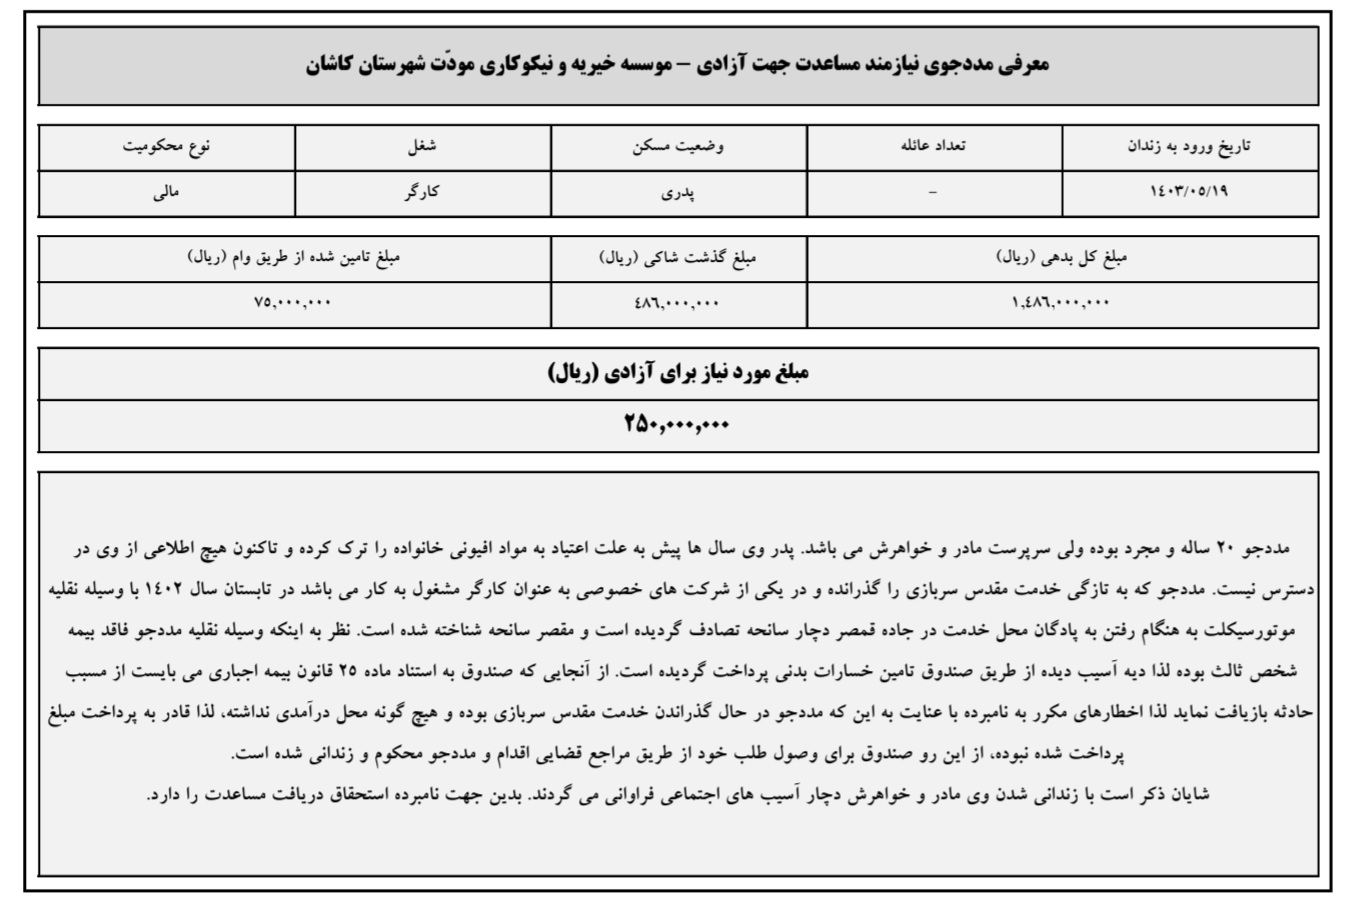 معرفی مددجوی نیازمند مساعدت جهت آزادی – موسسه خیریه و نیکوکاری مودّت شهرستان کاشان
تاریخ ورود به زندان	تعداد عائله	وضعیت مسکن	شغل	نوع محکومیت
۱٤۰۳/۰٥/۱۹	–	پدری	کارگر	مالی
مبلغ کل بدهی (ریال)	مبلغ گذشت شاکی (ریال)	مبلغ تامین شده از طریق وام (ریال)
۱,٤۸٦,۰۰۰,۰۰۰	٤۸٦,۰۰۰,۰۰۰	۷٥,۰۰۰,۰۰۰
مبلغ مورد نیاز برای آزادی (ریال)
۲۵۰,۰۰۰,۰۰۰
مددجو ۲۰ ساله و مجرد بوده ولی سرپرست مادر و خواهرش می باشد. پدر وی سال ها پیش به علت اعتیاد به مواد افیونی خانواده را ترک کرده و تاکنون هیچ اطلاعی از وی در
دسترس نیست. مددجو که به تازگی خدمت مقدس سربازی را گذرانده و در یکی از شرکت های خصوصی به عنوان کارگر مشغول به کار می باشد در تابستان سال ۱٤۰۲ با وسیله نقلیه
موتورسیکلت به هنگام رفتن به پادگان محل خدمت در جاده قمصر دچار سانحه تصادف گردیده است و مقصر سانحه شناخته شده است. نظر به اینکه وسیله نقلیه مددجو فاقد بیمه
شخص ثالث بوده لذا دیه آسیب دیده از طریق صندوق تامین خسارات بدنی پرداخت گردیده است. از آنجایی که صندوق به استناد ماده ۲٥ قانون بیمه اجباری می بایست از مسبب
حادثه بازیافت نماید لذا اخطارهای مکرر به نامبرده با عنایت به این که مددجو در حال گذراندن خدمت مقدس سربازی بوده و هیچ گونه محل درآمدی نداشته، لذا قادر به پرداخت مبلغ
پرداخت شده نبوده، از این رو صندوق برای وصول طلب خود از طریق مراجع قضایی اقدام و مددجو محکوم و زندانی شده است.
شایان ذکر است با زندانی شدن وی مادر و خواهرش دچار آسیب های اجتماعی فراوانی می گردند. بدین جهت نامبرده استحقاق دریافت مساعدت را دارد.